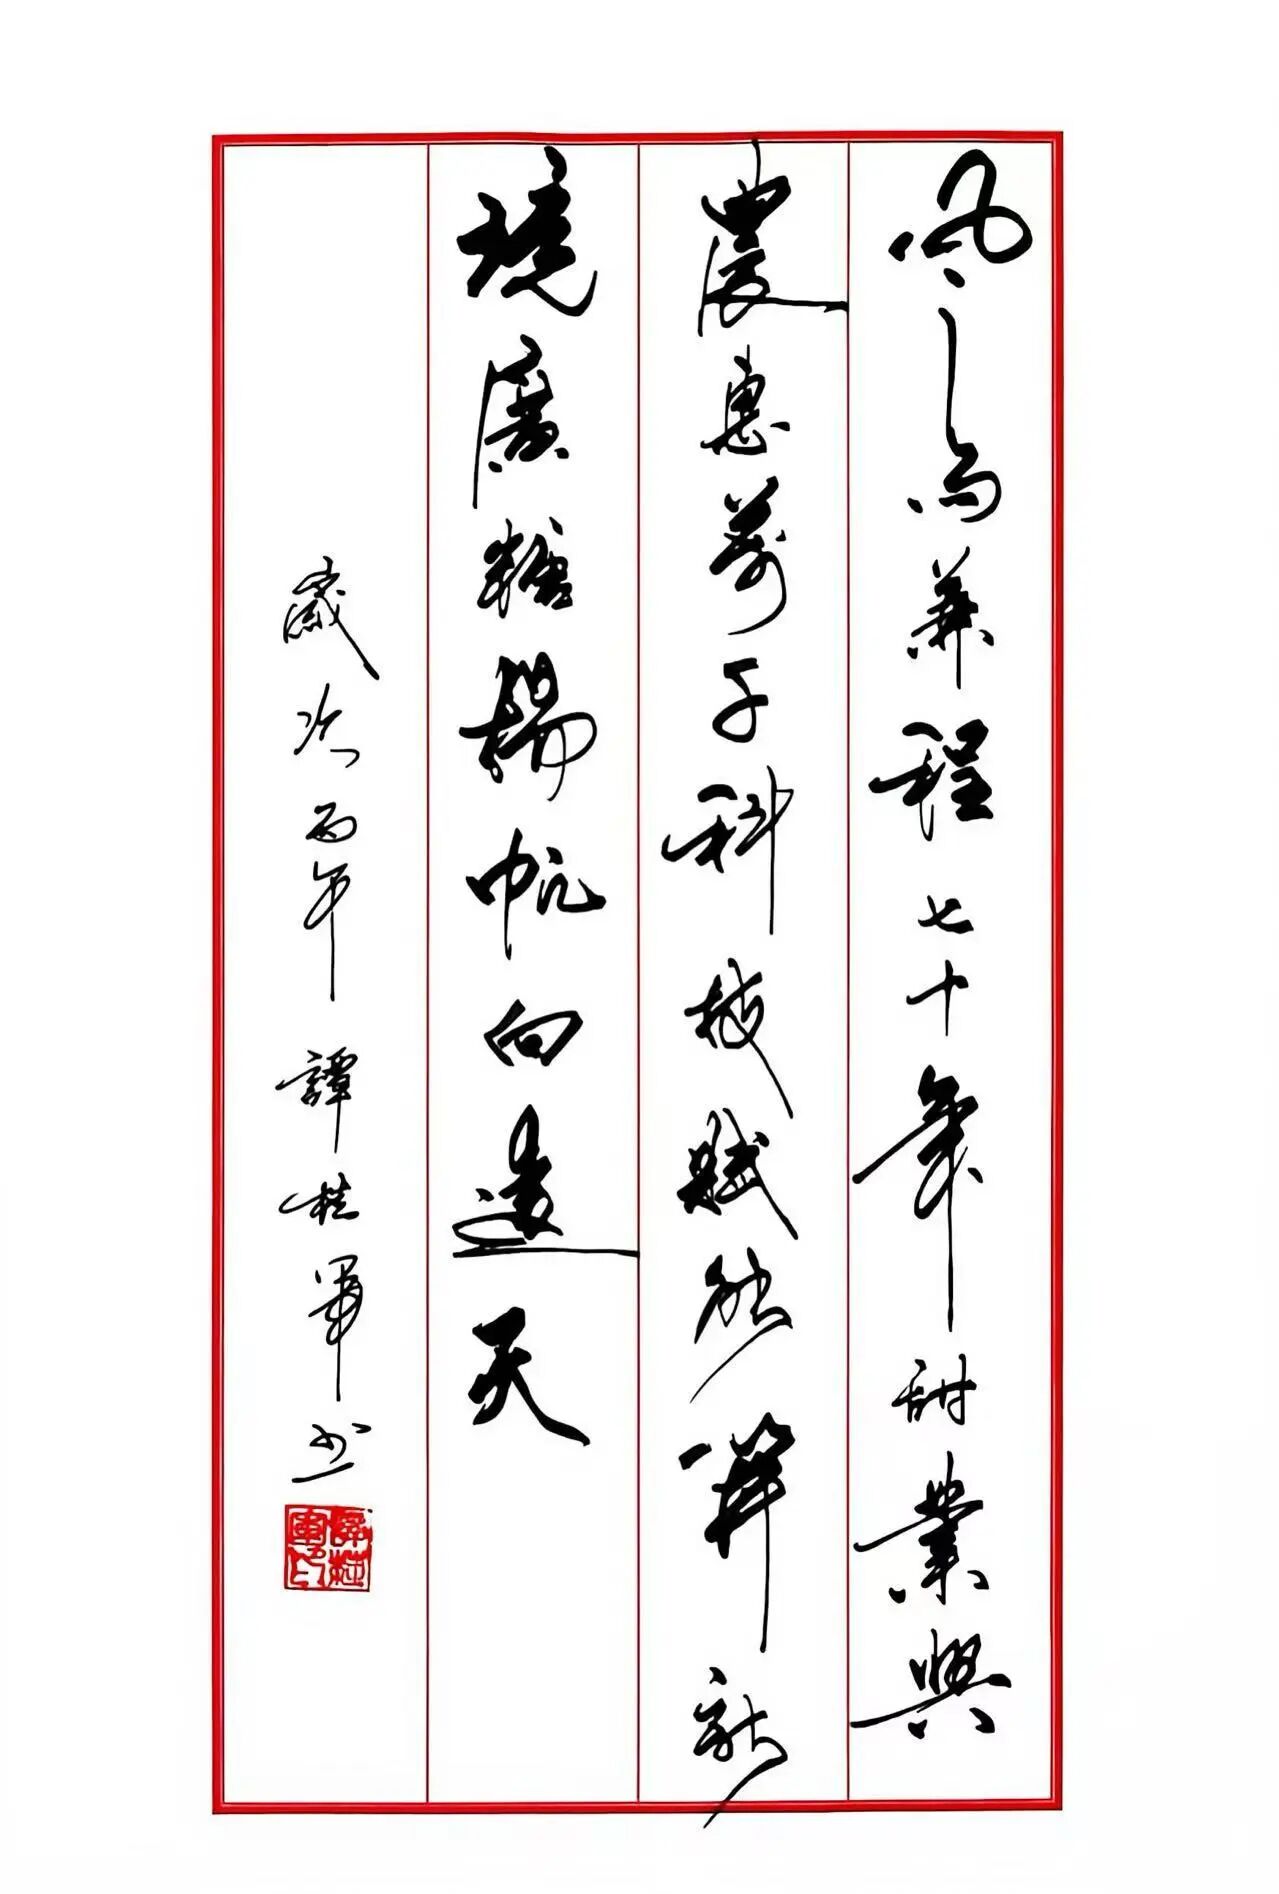 風雨兼程七十年甜業興
農惠萬千科技賦能開新
境廣糖揚帆向遠天
歲次丙午譚桂軍書
譚桂軍印